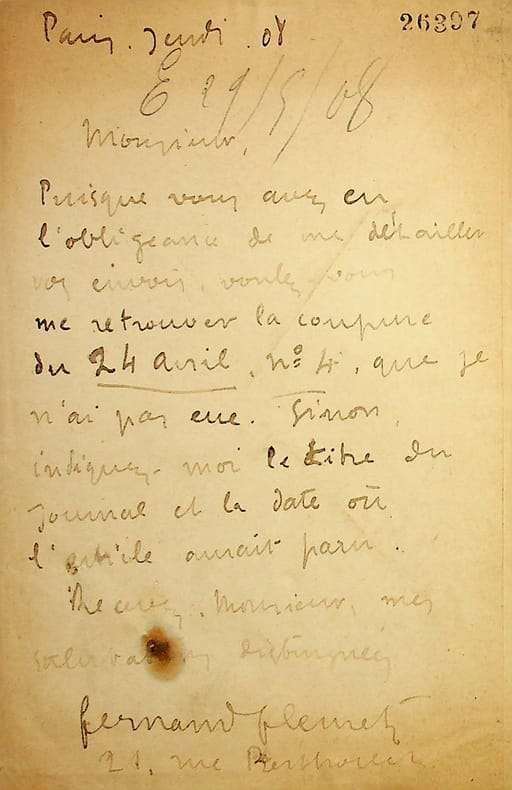 Paris. Jeudi. 08
26397
E 29/5/08
Monsieur,
Puisque vous avez eu
l'obligeance de me détailler
vos envois, voulez-vous
me retrouver la coupure
du 24 avril, nº 4, que je
n'ai pas eue. Sinon,
indiquez-moi le titre du
Journal et la date où
l'article aurait paru.
Recevez, Monsieur, mes
salutations distinguées
fernand fleuret
21, rue